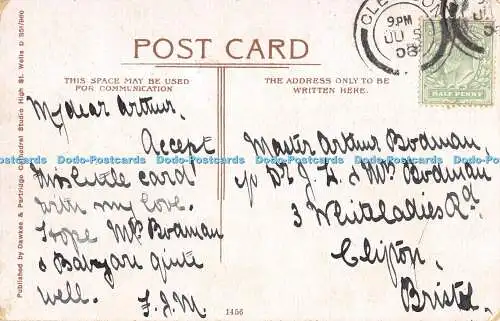 Published by Dawkes & Partridge Cathedral Studio High St. Wells
POST CARD
THIS SPACE MAY BE USED
FOR COMMUNICATION
THE ADDRESS ONLY TO BE
WRITTEN HERE.
9.PM
08
HALF PENNY
My dear Arthur,
Accept
this little card
with my love.
I hope Mrs Bodman
& Baby are quite
well.
F.J.M.
Master Arthur Bodman,
c/o Dr J. H. & Mrs Bodman
3 Whiteladies Rd.
Clifton,
Bristol.
1456
Dodo-Postcards Dodo-Postcards Dodo-Postcards Dodo-Postcards Dodo-Postcards Dodo-Postcards